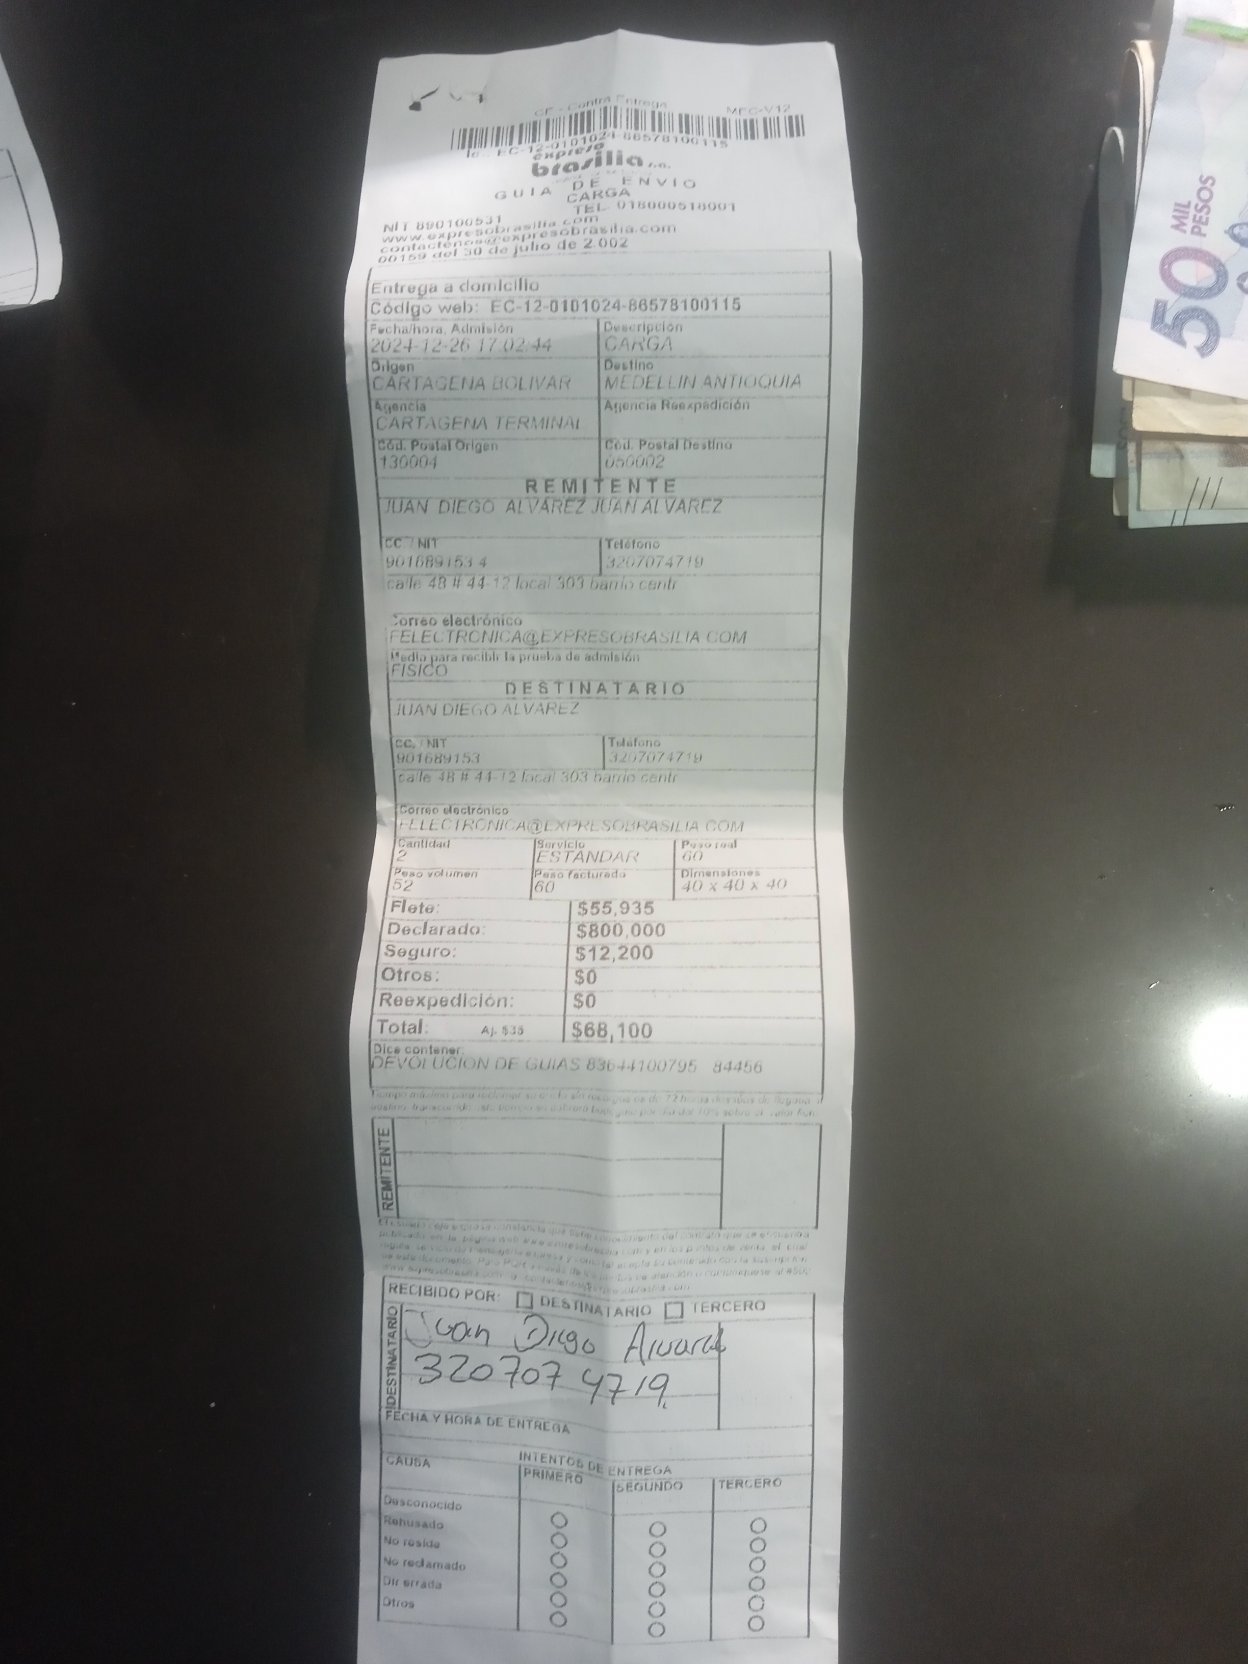 CE - Contra Entrega MFC-V12
EC-12-0101024-86578100115
expreso
brasilia s.a.
GUIA DE ENVIO
CARGA
TEL. 018000518001
NIT 890100531
www.expresobrasilia.com
contactenos@expresobrasilia.com
00159 del 30 de julio de 2.002
Entrega a domicilio
Código web: EC-12-0101024-86578100115
Fecha/hora, Admisión Descripción
2024-12-26 17:02:44 CARGA
Origen Destino
CARTAGENA BOLIVAR MEDELLIN ANTIOQUIA
Agencia Agencia Reexpedición
CARTAGENA TERMINAL
Cód. Postal Origen Cód. Postal Destino
130004 050002
REMITENTE
JUAN DIEGO ALVAREZ JUAN ALVAREZ
CC. / NIT Teléfono
901689153 4 3207074719
calle 48 # 44-12 local 303 barrio centr
Correo electrónico
FELECTRONICA@EXPRESOBRASILIA.COM
Medio para recibir la prueba de admisión
FISICO
DESTINATARIO
JUAN DIEGO ALVAREZ
CC. / NIT Teléfono
901689153 3207074719
calle 48 # 44-12 local 303 barrio centr
Correo electrónico
FELECTRONICA@EXPRESOBRASILIA.COM
Cantidad Servicio Peso real
2 ESTANDAR 60
Peso volumen Peso facturado Dimensiones
52 60 40 x 40 x 40
Flete: $55,935
Declarado: $800,000
Seguro: $12,200
Otros: $0
Reexpedición: $0
Total: Aj. $35 $68,100
Dice contener:
DEVOLUCION DE GUIAS 83644100795 84456
REMITENTE
RECIBIDO POR: DESTINATARIO TERCERO
DESTINATARIO
Juan Diego Alvarez
320707 4719
FECHA Y HORA DE ENTREGA
CAUSA INTENTOS DE ENTREGA
PRIMERO SEGUNDO TERCERO
Desconocido
Rehusado
No reside
No reclamado
Dir errada
Otros
50 MIL
PESOS